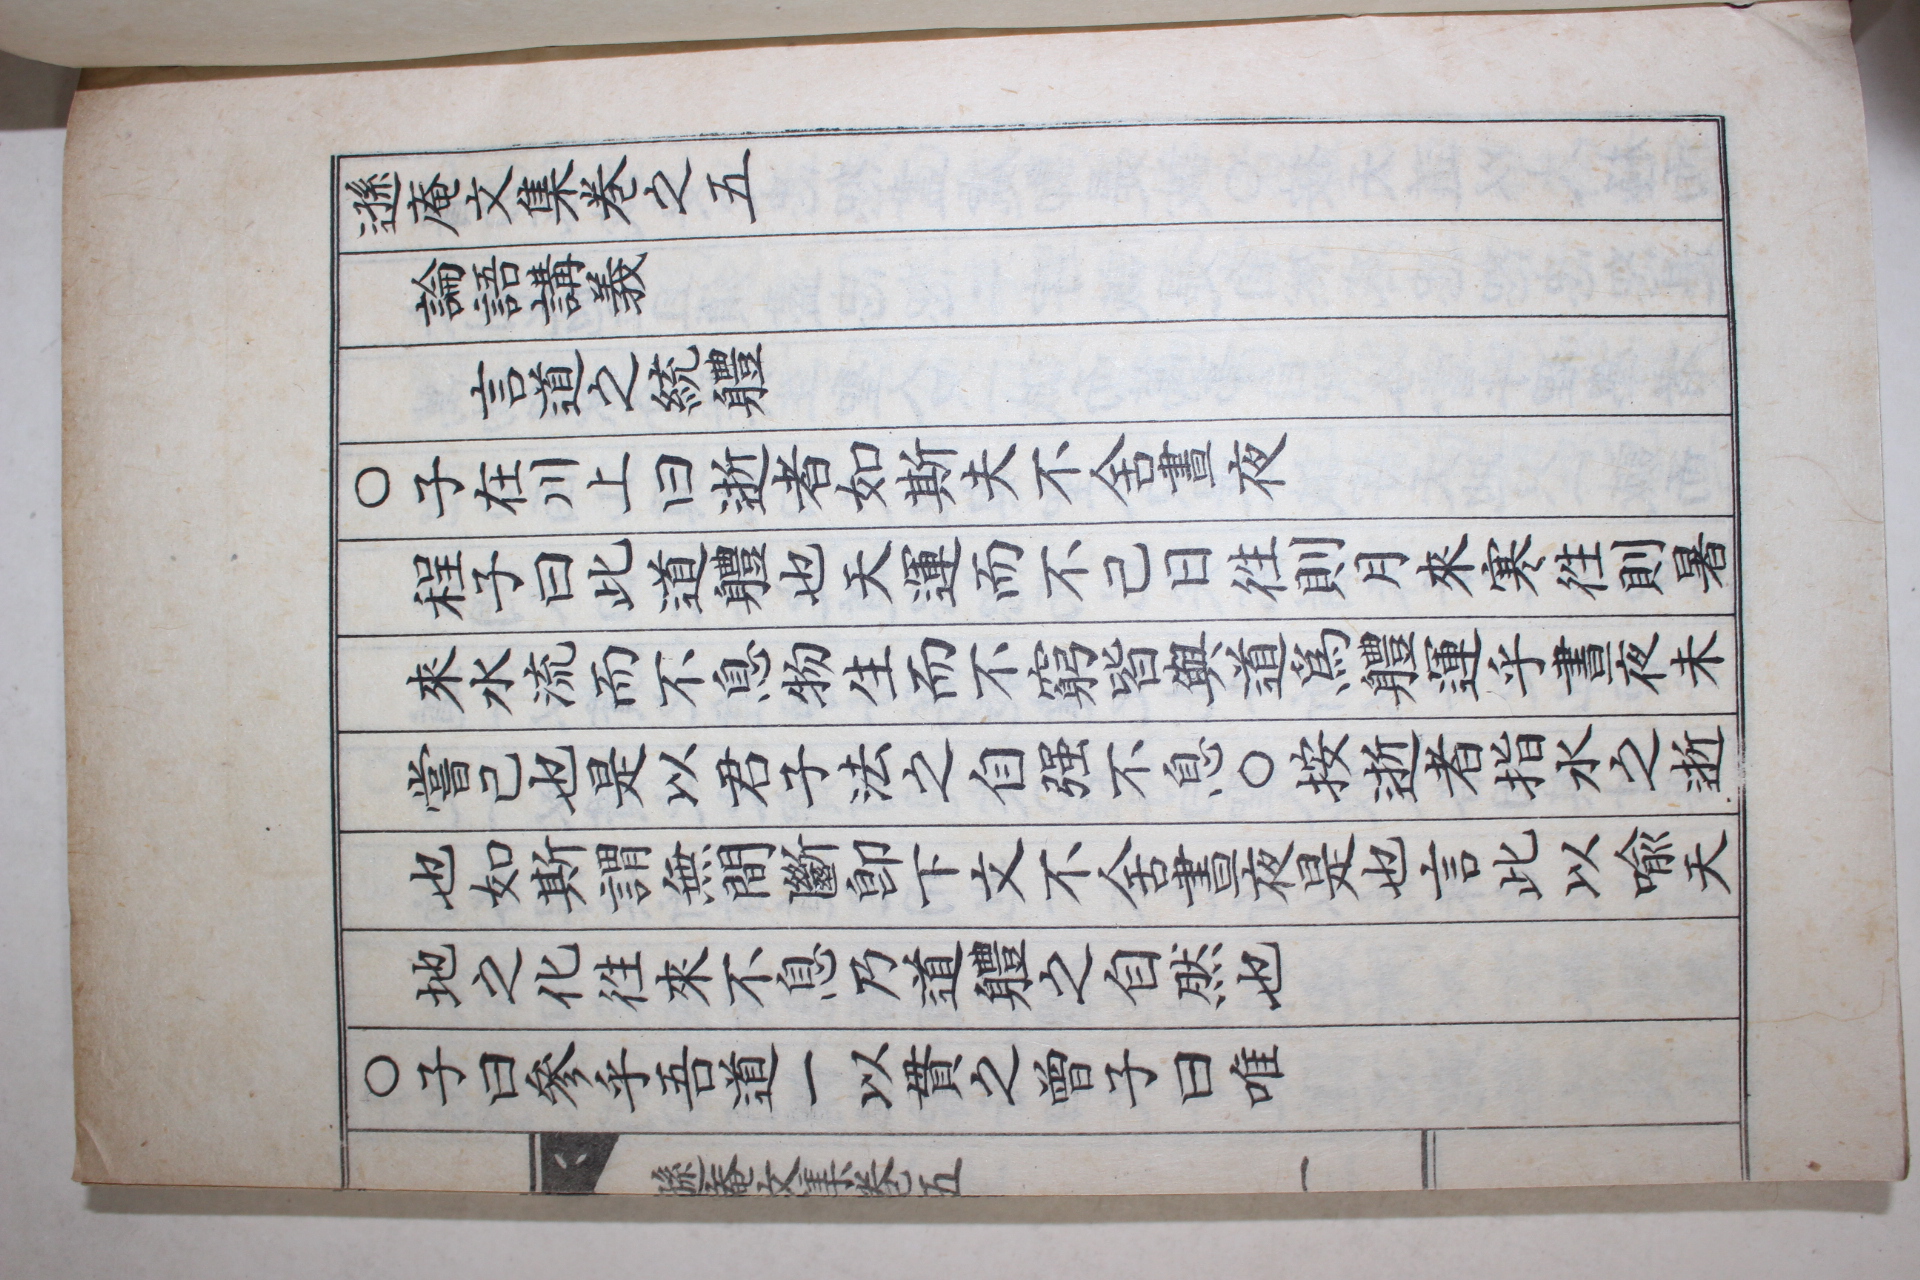 遜庵文集卷之五
論語講義
言道之統軆
○子在川上曰逝者如斯夫不舍晝夜
程子曰此道軆也天運而不已日往則月來寒往則暑
來水流而不息物生而不窮皆與道爲軆運乎晝夜未
嘗已也是以君子法之自强不息○按逝者指水之逝
也如斯謂無間斷卽下文不舍晝夜是也言此以喩天
地之化往來不息乃道軆之自然也
○子曰參乎吾道一以貫之曾子曰唯
遜庵文集卷五
一